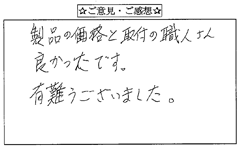 ☆ご意見・ご感想☆
製品の価格と取付の職人さん
良かったです。
有難うございました。